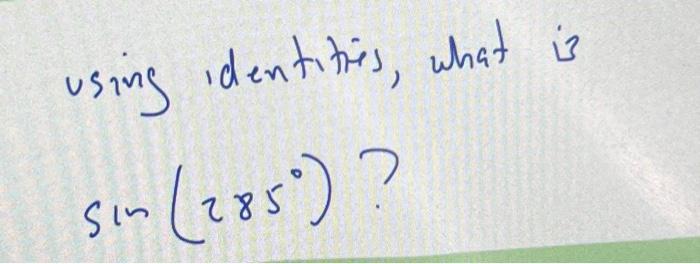 using identities, what is
sin (285°) ?